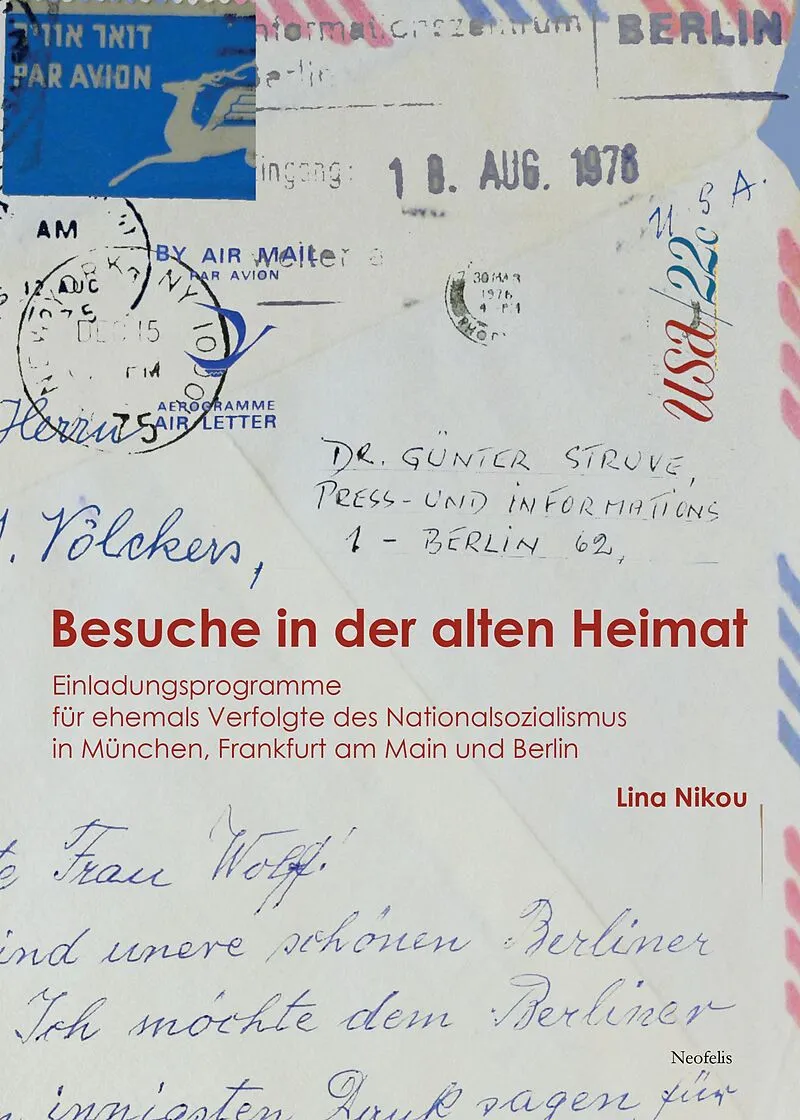 דואר אויר
PAR AVION
Informationszentrum
BERLIN
Berlin
Eingang:
18. AUG. 1976
U S A.
AM
BY AIR MAIL
PAR AVION
weiter a
12 AUC
NEW YORK, NY 100
DEC 15
PM
75
30 MAR
1976
4 PM
usa/22c
AEROGRAMME
AIR LETTER
Herrn
DR. GÜNTER STRUVE,
PRESS-UND INFORMATIONS
1 - BERLIN 62,
. Völckers,
Besuche in der alten Heimat
Einladungsprogramme
für ehemals Verfolgte des Nationalsozialismus
in München, Frankfurt am Main und Berlin
Lina Nikou
te Frau Wolff!
ind unere schönen Berliner
Ich möchte dem Berliner
Neofelis
innigsten Dank sagen für